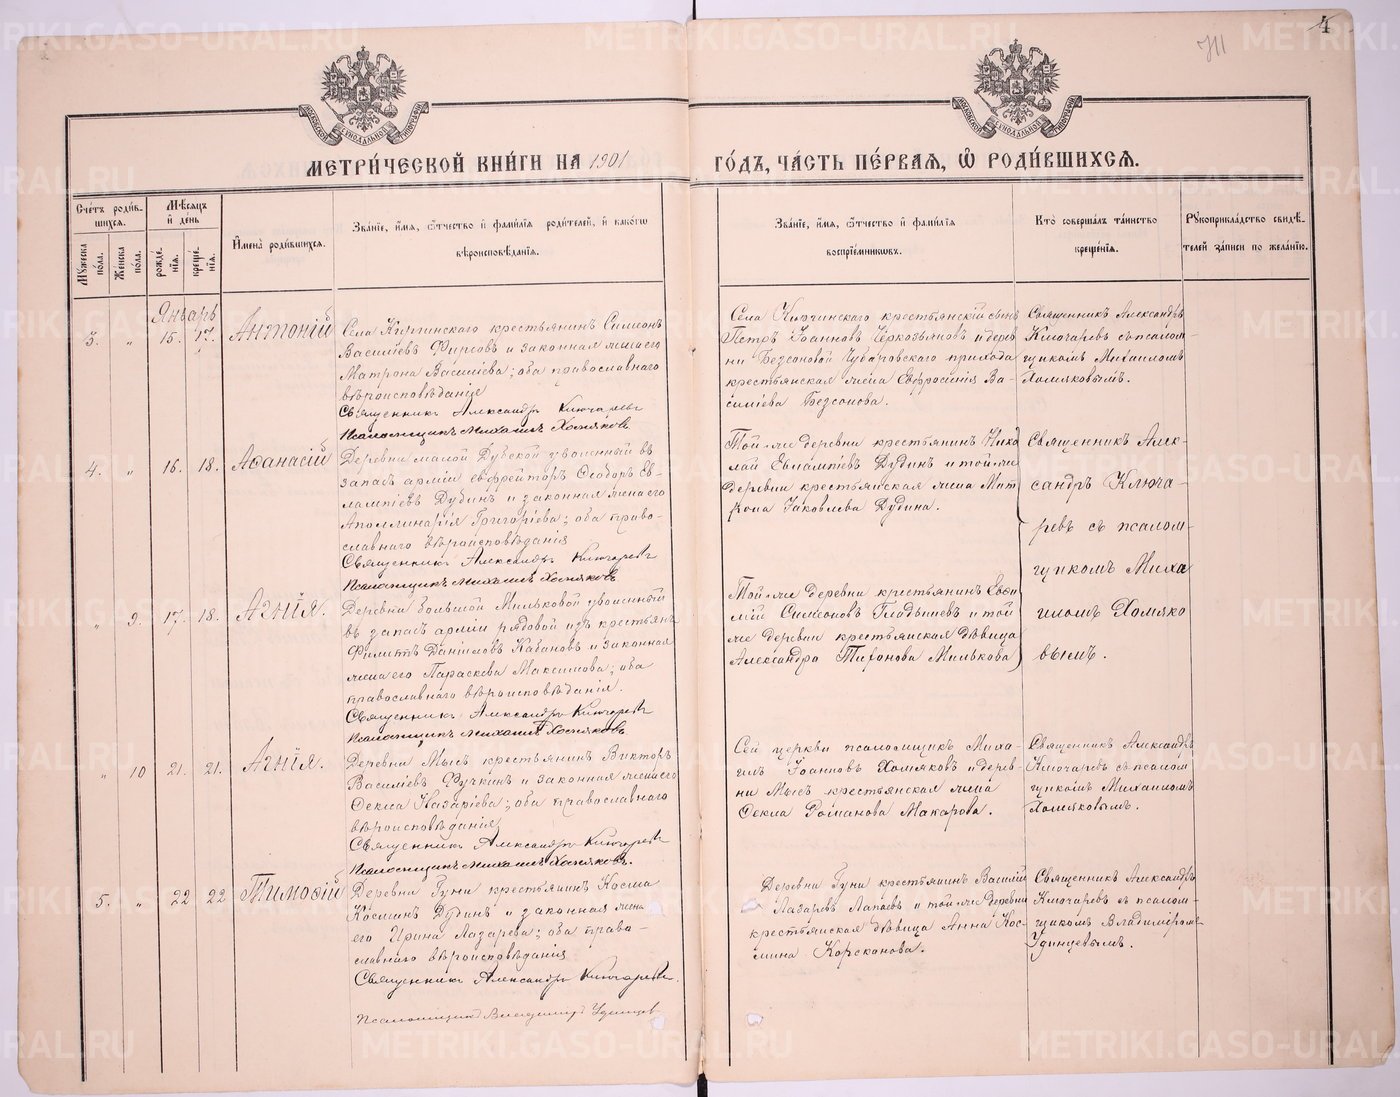 4
МЕТРИ́ЧЕСКОЙ КНИ́ГИ НА 1901
ГО́ДЪ, ЧА́СТЬ ПЕ́РВАѦ, Ѡ҆ РОДИ́ВШИХСѦ.
Сче́тъ роди́в-
шихсѧ.
Мѣ́сѧцъ
и҆ де́нь
Мꙋ́жеска по́ла.
Же́нска по́ла.
рожде-
нїѧ.
креще-
нїѧ.
И҆мена̀ роди́вшихсѧ.
Зва́нїе, и҆́мѧ, ѻ҆́тчество и҆ фамилїѧ роди́телей, и҆ како́гѡ
вѣроисповѣ́данїѧ.
Зва́нїе, и҆́мѧ, ѻ҆́тчество и҆ фами́лїѧ
воспрїе́мниковъ.
Кто̀ соверша́лъ та́инство
креще́нїѧ.
Рꙋкоприкла́дство свидѣ́-
телей за́писи по жела́нїю.
Январь
3. " 15. 17. Антоній
Села Киргинскаго крестьянинъ Симеонъ
Васильевъ Фирсовъ и законная жена его
Матрона Васильева; оба православнаго
вѣроисповѣданія
Священникъ Александръ Ключаревъ
Псаломщикъ Михаилъ Хомяковъ
Села Киргинскаго крестьянскій сынъ
Петръ Іоанновъ Черкозьяновъ и дерев
ни Безсоновой Чубаровскаго прихода
крестьянская жена Евфросинія Ва-
сильева Безсонова.
Священникъ Александръ
Ключаревъ съ псалом
щикомъ Михаиломъ
Хомяковымъ.
4. " 16. 18. Аѳанасій
Деревни малой Дубской уволенный въ
запасъ арміи ефрейторъ Ѳеодоръ Ев-
лампіевъ Дубинъ и законная жена его
Аполлинарія Григорьева; оба право-
славнаго вѣроисповѣданія
Священникъ Александръ Ключаревъ
Псаломщикъ Михаилъ Хомяковъ
Той-же деревни крестьянинъ Нико
лай Евлампіевъ Дубинъ и той-же
деревни крестьянская жена Мат
рона Іаковлева Дубина.
Священникъ Алек-
сандръ Ключа-
ревъ съ псалом-
щикомъ Миха
иломъ Хомяко
вымъ.
" 9. 17. 18. Агнія.
Деревни большой Мильковой уволенный
въ запасъ арміи рядовой изъ крестьянъ
Филиппъ Даниловъ Кабановъ и законная
жена его Параскева Максимова; оба
православнаго вѣроисповѣданія.
Священникъ Александръ Ключаревъ
Псаломщикъ Михаилъ Хомяковъ
Той-же деревни крестьянинъ Евѳи
мій Симеоновъ Гладышевъ и той
же деревни крестьянская дѣвица
Александра Тихонова Милькова
" 10 21. 21. Агнія.
Деревни Мысъ крестьянинъ Викторъ
Васильевъ Фучкинъ и законная жена его
Ѳекла Назарьева; оба православнаго
вѣроисповѣданія
Священникъ Александръ Ключаревъ
Псаломщикъ Михаилъ Хомяковъ.
Сей церкви псаломщикъ Миха-
илъ Іоанновъ Хомяковъ и дерев-
ни Мысъ крестьянская жена
Ѳекла Романова Макарова.
Священникъ Александръ
Ключаревъ съ псалом
щикомъ Михаиломъ
Хомяковымъ.
5. " 22 22 Тимоѳій
Деревни Гуни крестьянинъ Косма
Косминъ Дудинъ и законная жена
его Ирина Лазарева; оба право-
славнаго вѣроисповѣданія
Священникъ Александръ Ключаревъ.
Псаломщикъ Владимиръ Удинцевъ
Деревни Гуни крестьянинъ Василій
Лазаревъ Лапаевъ и той-же деревни
крестьянская дѣвица Анна Кос-
мина Корсканова.
Священникъ Александръ
Ключаревъ съ псалом-
щикомъ Владиміромъ
Удинцевымъ.
METRIKI.GASO-URAL.RU